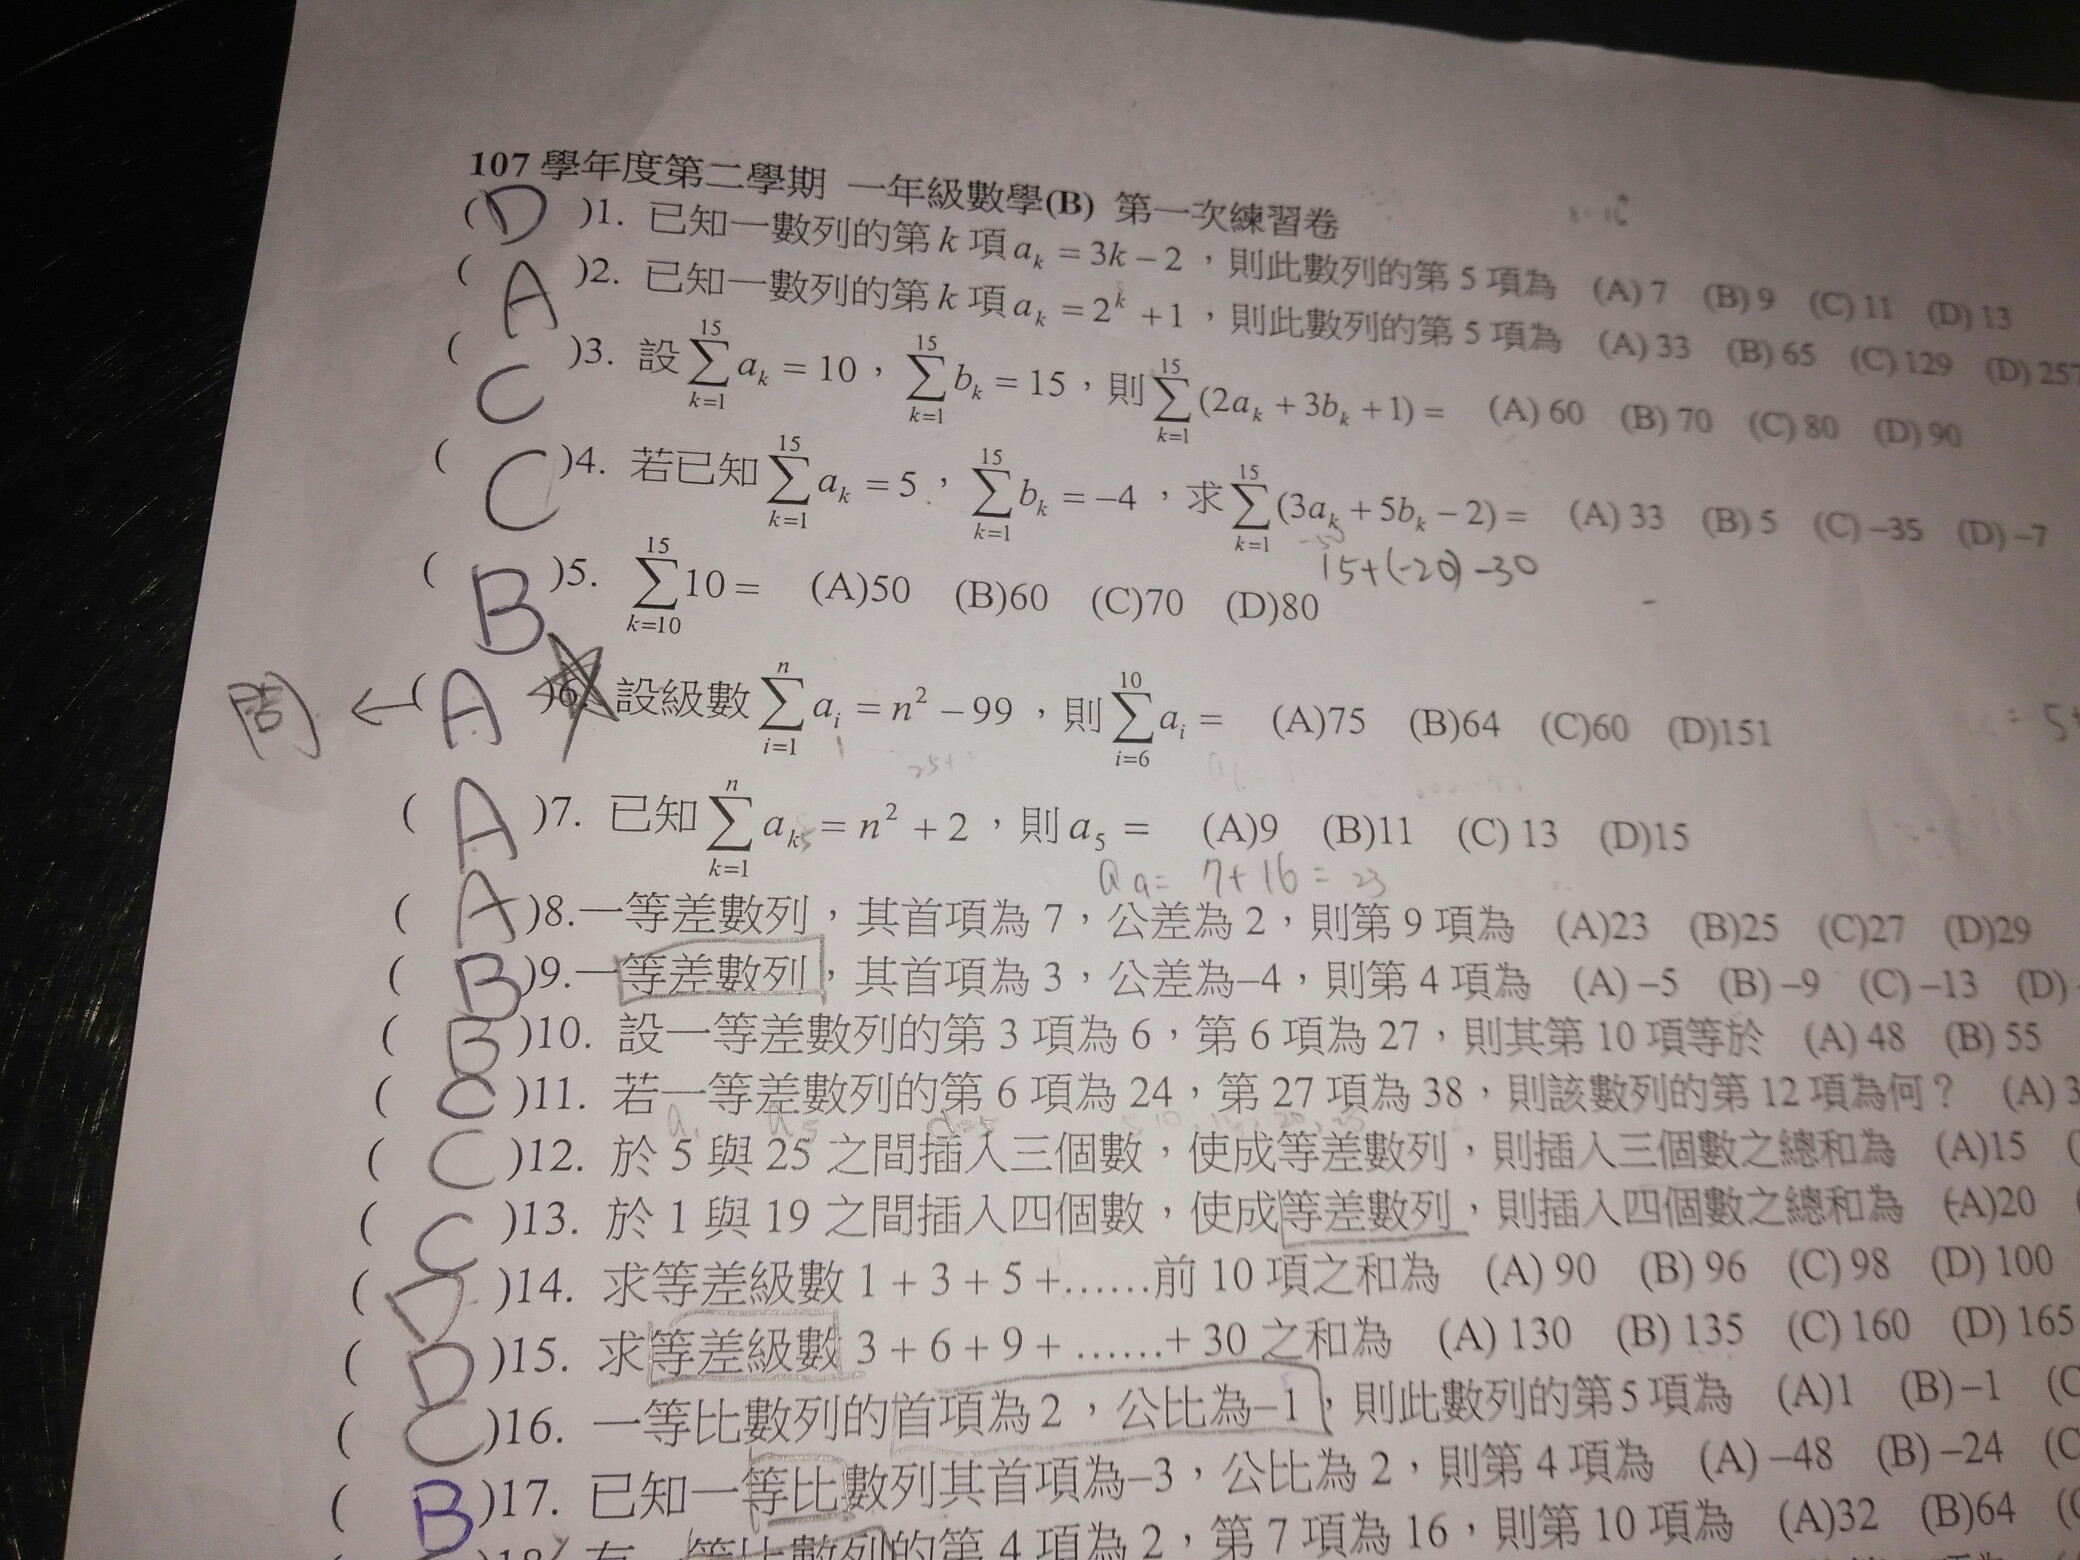 107 學年度第二學期 一年級數學(B) 第一次練習卷
( D )1. 已知一數列的第 k 項 a_k = 3k − 2，則此數列的第 5 項為 (A) 7 (B) 9 (C) 11 (D) 13
( A )2. 已知一數列的第 k 項 a_k = 2^k + 1，則此數列的第 5 項為 (A) 33 (B) 65 (C) 129 (D) 257
( C )3. 設 ∑_{k=1}^{15} a_k = 10，∑_{k=1}^{15} b_k = 15，則 ∑_{k=1}^{15} (2a_k + 3b_k + 1) = (A) 60 (B) 70 (C) 80 (D) 90
( C )4. 若已知 ∑_{k=1}^{15} a_k = 5，∑_{k=1}^{15} b_k = −4，求 ∑_{k=1}^{15} (3a_k + 5b_k − 2) = (A) 33 (B) 5 (C) −35 (D) −7
15+(-20)-30
( B )5. ∑_{k=10}^{15} 10 = (A)50 (B)60 (C)70 (D)80
問 ← ( A )6. 設級數 ∑_{i=1}^{n} a_i = n² − 99，則 ∑_{i=6}^{10} a_i = (A)75 (B)64 (C)60 (D)151
( A )7. 已知 ∑_{k=1}^{n} a_k = n² + 2，則 a_5 = (A)9 (B)11 (C) 13 (D)15
a9 = 7+16 = 23
( A )8.一等差數列，其首項為 7，公差為 2，則第 9 項為 (A)23 (B)25 (C)27 (D)29
( B )9.一等差數列，其首項為 3，公差為−4，則第 4 項為 (A) −5 (B) −9 (C) −13 (D)
( B )10. 設一等差數列的第 3 項為 6，第 6 項為 27，則其第 10 項等於 (A) 48 (B) 55
( C )11. 若一等差數列的第 6 項為 24，第 27 項為 38，則該數列的第 12 項為何？ (A) 3
( C )12. 於 5 與 25 之間插入三個數，使成等差數列，則插入三個數之總和為 (A)15 (
( C )13. 於 1 與 19 之間插入四個數，使成等差數列，則插入四個數之總和為 (A)20 (
( D )14. 求等差級數 1 + 3 + 5 +……前 10 項之和為 (A) 90 (B) 96 (C) 98 (D) 100
( D )15. 求等差級數 3 + 6 + 9 + ……+ 30 之和為 (A) 130 (B) 135 (C) 160 (D) 165
( C )16. 一等比數列的首項為 2，公比為−1，則此數列的第 5 項為 (A)1 (B)−1 (C
( B )17. 已知一等比數列其首項為−3，公比為 2，則第 4 項為 (A) −48 (B) −24 (C
)18. 有一等比數列的第 4 項為 2，第 7 項為 16，則第 10 項為 (A)32 (B)64 (